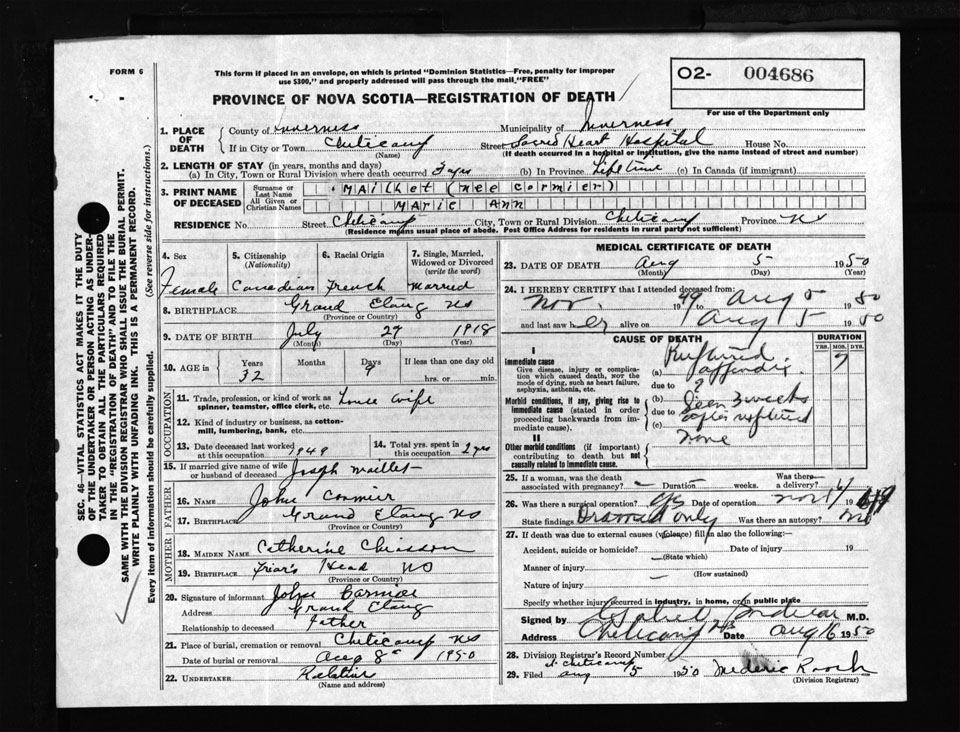 FORM 6
This form if placed in an envelope, on which is printed "Dominion Statistics—Free, penalty for improper
use $300," and properly addressed will pass through the mail "FREE"
O2- 004686
For use of the Department only
PROVINCE OF NOVA SCOTIA—REGISTRATION OF DEATH
1. PLACE OF DEATH { County of Inverness Municipality of Inverness
If in City or Town Cheticamp Street Sacred Heart Hospital House No.
(Name) (If death occurred in a hospital or institution, give the name instead of street and number)
2. LENGTH OF STAY (in years, months and days)
(a) In City, Town or Rural Division where death occurred 3 yrs (b) In Province Life time (c) In Canada (if immigrant)
3. PRINT NAME OF DECEASED { Surname or Last Name Mailhet (nee Cormier)
All Given or Christian Names MARIE ANN
RESIDENCE No. Street Cheticamp City, Town or Rural Division Cheticamp Province NS
(Residence means usual place of abode. Post Office Address for residents in rural parts not sufficient)
4. Sex 5. Citizenship (Nationality) 6. Racial Origin 7. Single, Married, Widowed or Divorced (write the word)
Female Canadian French Married
8. BIRTHPLACE Grand Etang NS
(Province or Country)
9. DATE OF BIRTH July 27 1918
(Month) (Day) (Year)
10. AGE in { Years Months Days If less than one day old
32 9 hrs. or min.
OCCUPATION
11. Trade, profession, or kind of work as spinner, teamster, office clerk, etc. House wife
12. Kind of industry or business, as cotton-mill, lumbering, bank, etc.
13. Date deceased last worked at this occupation 1949 14. Total yrs. spent in this occupation 2 yrs
15. If married give name of wife or husband of deceased Joseph Maillet
FATHER
16. NAME John Cormier
17. BIRTHPLACE Grand Etang NS
(Province or Country)
MOTHER
18. MAIDEN NAME Catherine Chiasson
19. BIRTHPLACE Friar's Head NS
(Province or Country)
20. Signature of informant John Cormier
Address Grand Etang
Relationship to deceased Father
21. Place of burial, cremation or removal Cheticamp NS
Date of burial or removal Aug 8 1950
22. UNDERTAKER Relative
(Name and address)
MEDICAL CERTIFICATE OF DEATH
23. DATE OF DEATH Aug 5 1950
(Month) (Day) (Year)
24. I HEREBY CERTIFY that I attended deceased from:
Nov. 1949 to Aug 5 1950
and last saw her alive on Aug 5 1950
CAUSE OF DEATH DURATION
YRS. MOS. DYS.
I
Immediate cause
Give disease, injury or complication which caused death, not the mode of dying, such as heart failure, asphyxia, asthenia, etc.
(a) Ruptured appendix. 9
due to ?
Morbid conditions, if any, giving rise to immediate cause (stated in order proceeding backwards from immediate cause).
(b) Seen 3 weeks
due to after ruptured
(c)
II
Other morbid conditions (if important) contributing to death but not causally related to immediate cause. None
25. If a woman, was the death associated with pregnancy? — Duration weeks. Was there a delivery?
26. Was there a surgical operation? Yes Date of operation Nov 14 1949
State findings Drained only Was there an autopsy? No
27. If death was due to external causes (violence) fill in also the following:
Accident, suicide or homicide? Date of injury 19
(State which)
Manner of injury
(How sustained)
Nature of injury
Specify whether injury occurred in industry, in home, or in public place
Signed by M.D.
Address Cheticamp NS Date Aug 16 1950
28. Division Registrar's Record Number
29. Filed Aug 1950 Frederic Roach
(Division Registrar)
SEC. 46—VITAL STATISTICS ACT MAKES IT THE DUTY
OF THE UNDERTAKER OR PERSON ACTING AS UNDER-
TAKER TO OBTAIN ALL THE PARTICULARS REQUIRED
IN THE "REGISTRATION OF DEATH" AND TO FILE THE
SAME WITH THE DIVISION REGISTRAR WHO SHALL ISSUE THE BURIAL PERMIT.
WRITE PLAINLY WITH UNFADING INK. THIS IS A PERMANENT RECORD.
Every item of information should be carefully supplied. (See reverse side for instructions.)